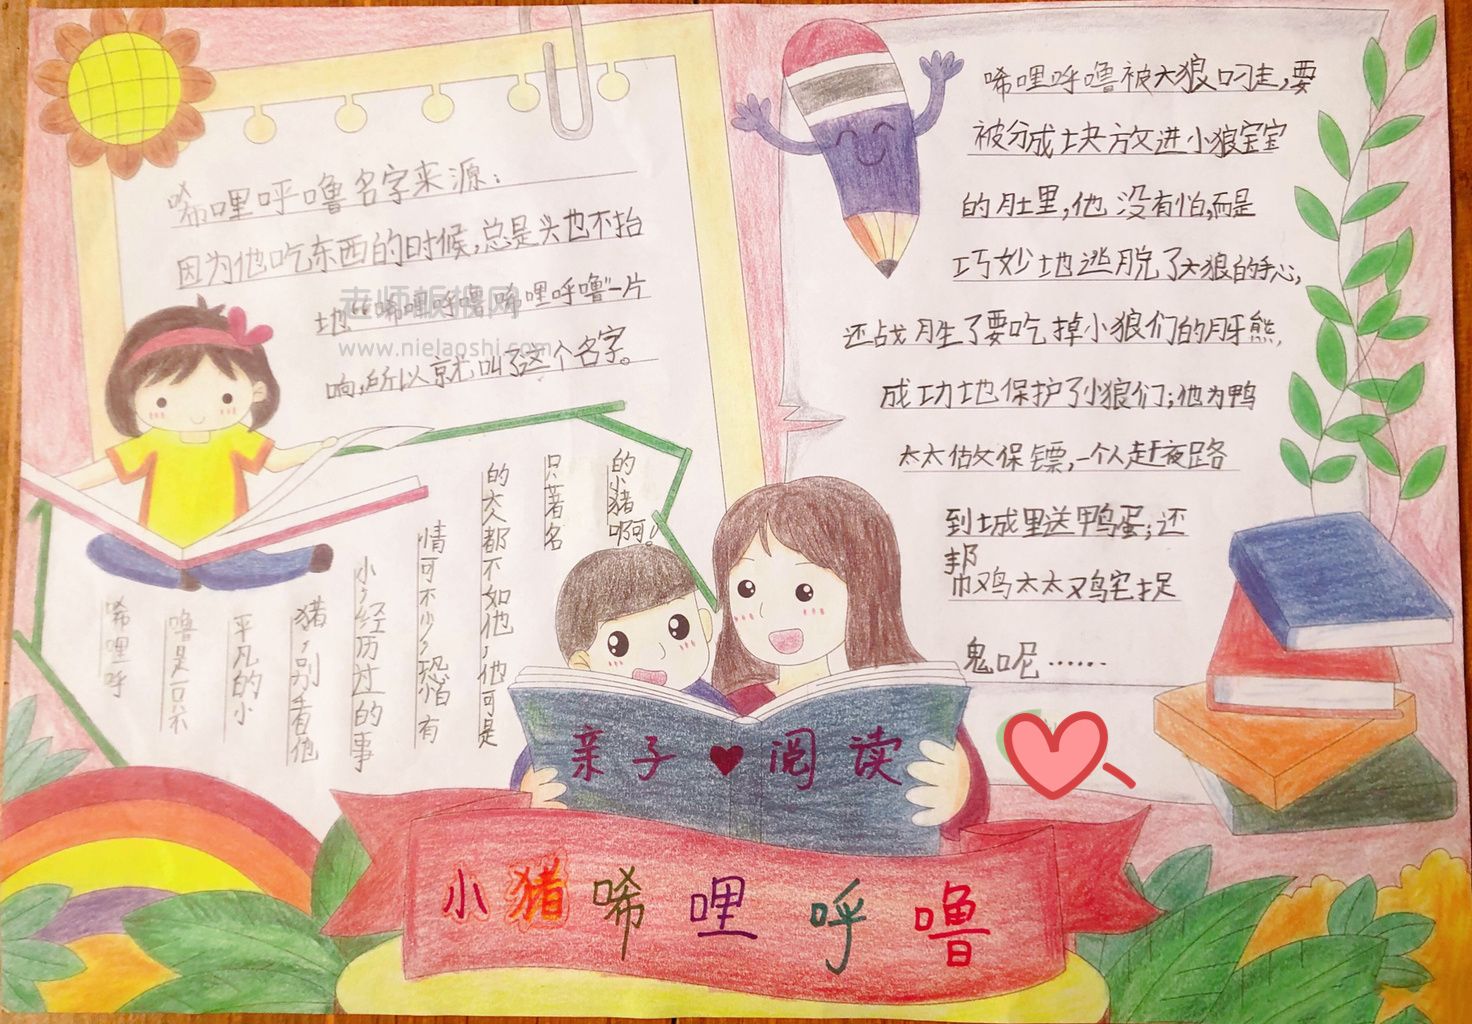 唏哩呼噜名字来源:
因为他吃东西的时候,总是头也不抬
地“唏哩呼噜唏哩呼噜”一片
响,所以就叫了这个名字。
老师板报网
www.nielaoshi.com
唏哩呼
噜是一只不
平凡的小
猪,别看他
小,经历过的事
情可不少,恐怕有
的大人都不如他,他可是
只著名
的小猪啊。
唏哩呼噜被大狼叼走,要
被分成块放进小狼宝宝
的肚里,他没有怕,而是
巧妙地逃脱了大狼的手心,
还战胜了要吃掉小狼们的月牙熊,
成功地保护了小狼们;他为鸭
太太做保镖,一个人赶夜路
到城里送鸭蛋;还
帮
鸡太太鸡宅捉
鬼呢……
亲子 阅读
小猪唏哩呼噜